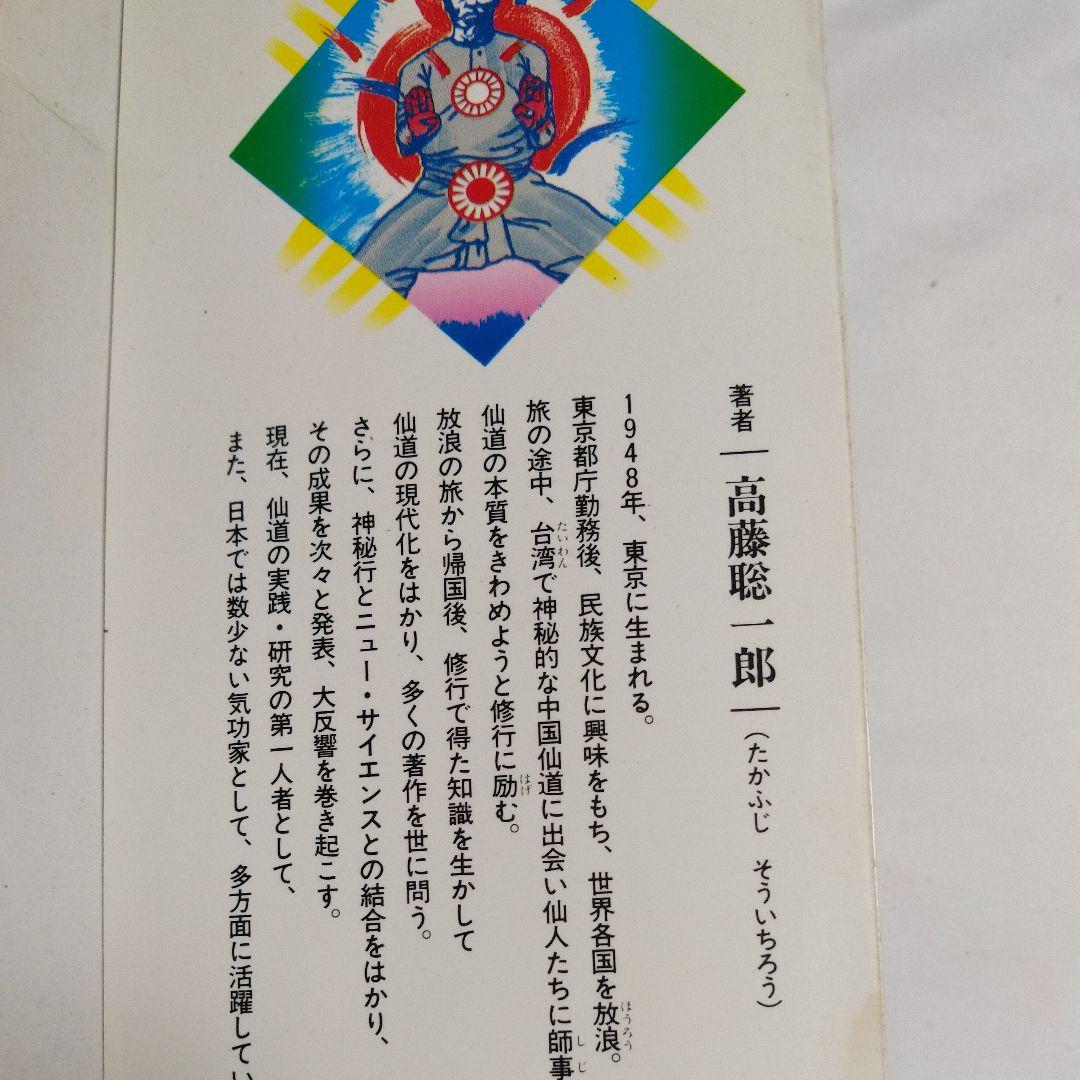 著者―高藤聡一郎―(たかふじ そういちろう)
1948年、東京に生まれる。
東京都庁勤務後、民族文化に興味をもち、世界各国を放浪。
ほうろう
旅の途中、台湾で神秘的な中国仙道に出会い仙人たちに師事
たいわん
しじ
仙道の本質をきわめようと修行に励む。
はげ
放浪の旅から帰国後、修行で得た知識を生かして
仙道の現代化をはかり、多くの著作を世に問う。
さらに、神秘行とニュー・サイエンスとの結合をはかり、
その成果を次々と発表、大反響を巻き起こす。
現在、仙道の実践・研究の第一人者として、
また、日本では数少ない気功家として、多方面に活躍してい